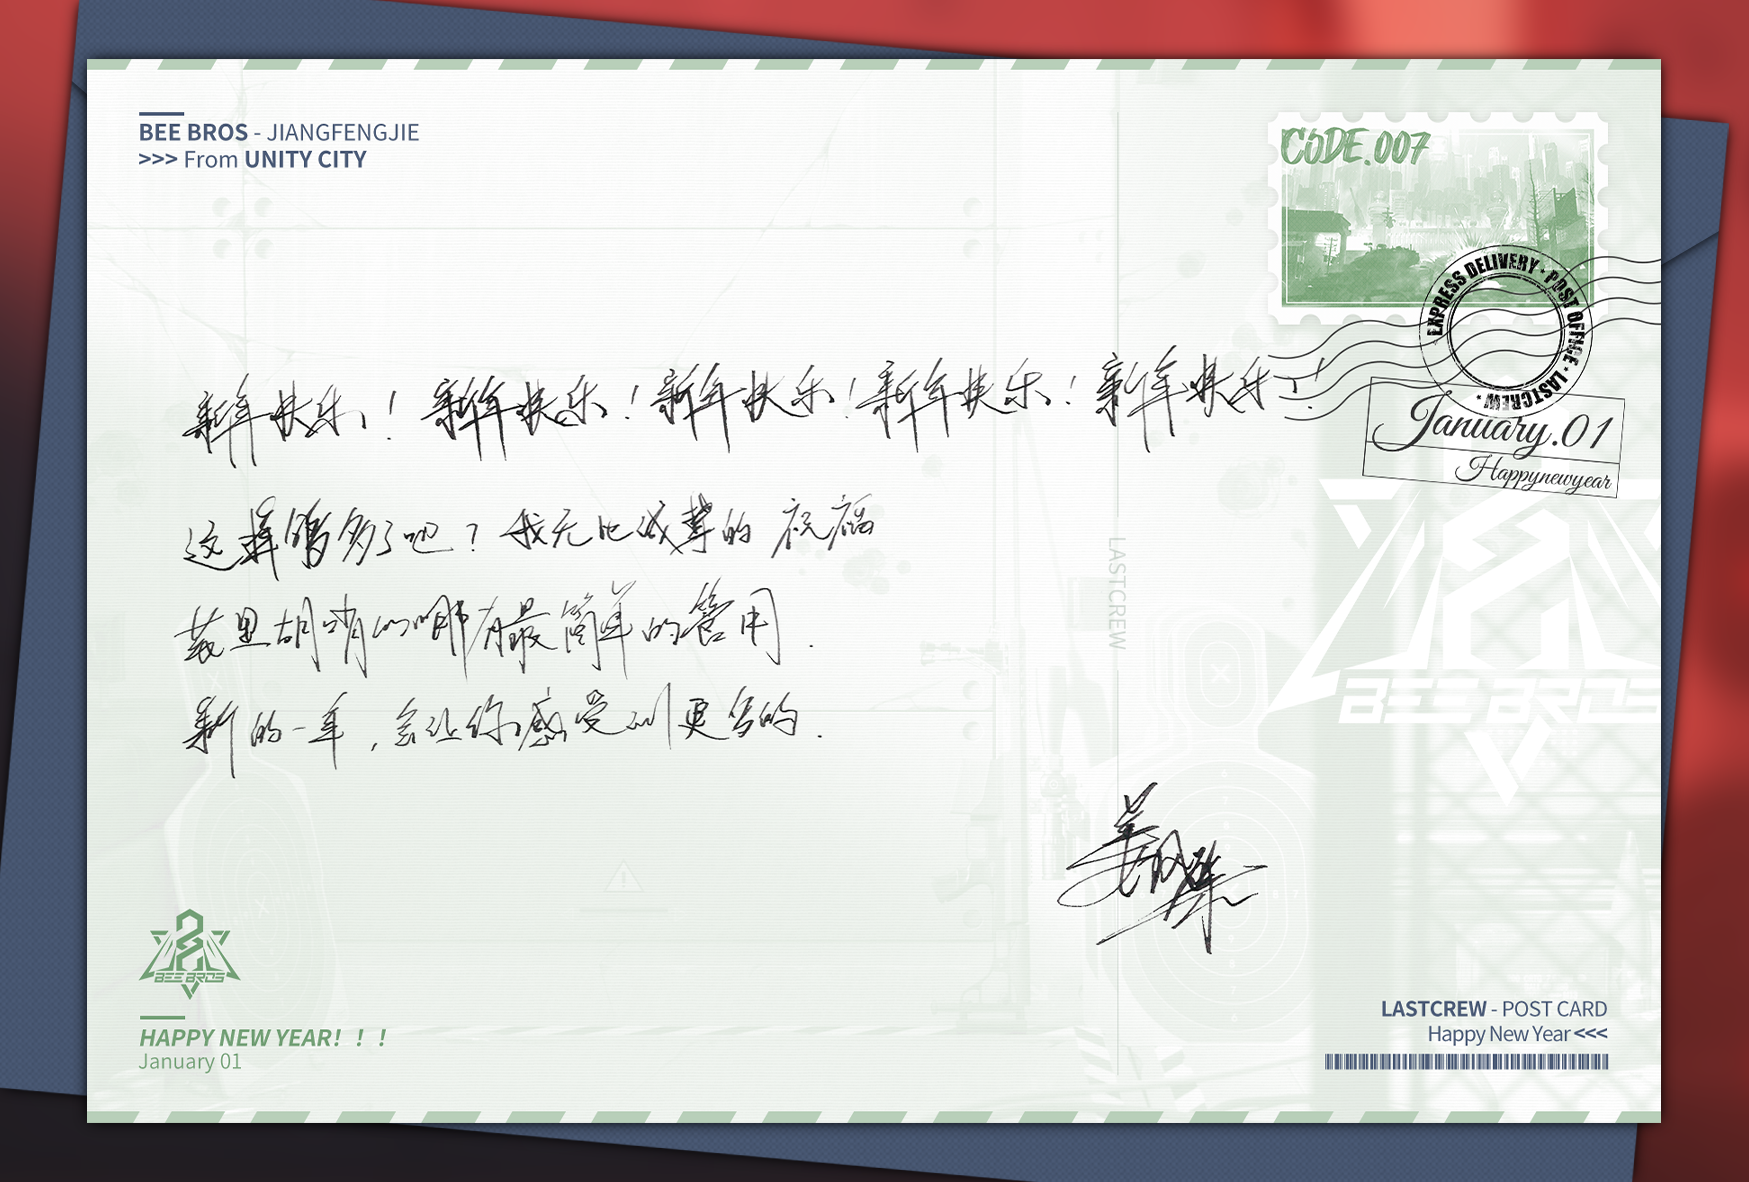 BEE BROS - JIANGFENGJIE
>>> From UNITY CITY
CODE.007
EXPRESS DELIVERY · POST OFFICE · LASTCREW ·
January.01
Happynewyear
新年快乐！新年快乐！新年快乐！新年快乐！新年快乐！
这样够多了吧？我无比诚挚的祝福
花里胡哨的哪有最简单的管用.
新的一年,会让你感受到更多的.
姜风杰
LASTCREW
BEE BROS
BEE BROS
HAPPY NEW YEAR！！！
January 01
LASTCREW - POST CARD
Happy New Year <<<